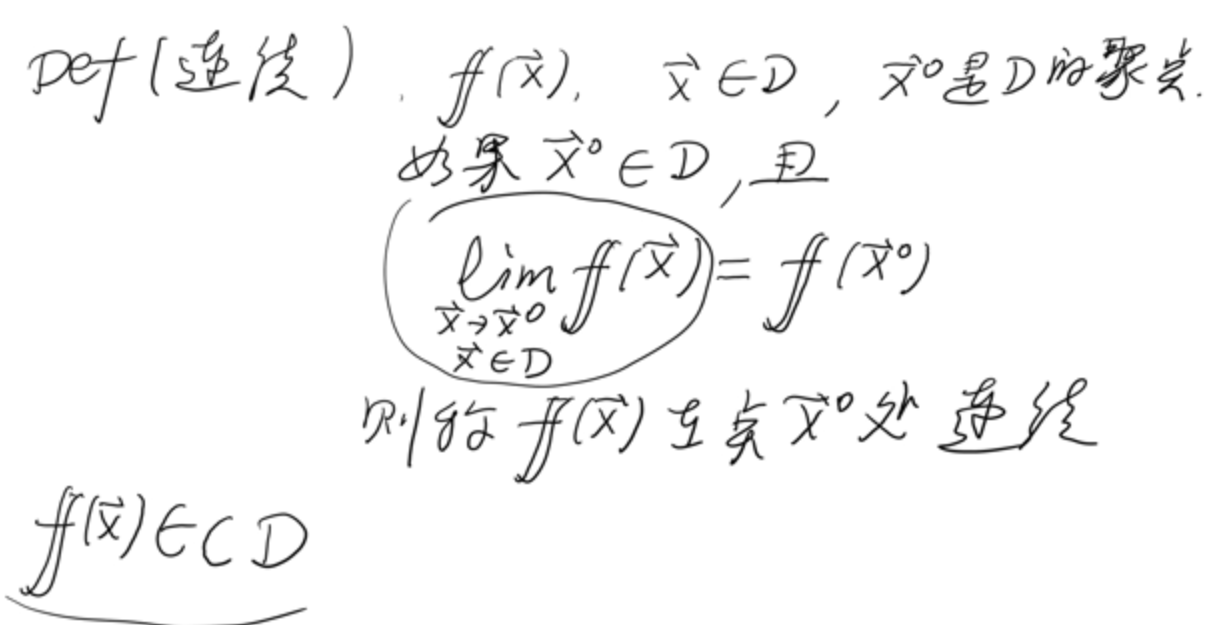 Def(连续). f(x⃗), x⃗∈D, x⃗⁰是D的聚点.
如果 x⃗⁰∈D,且
lim f(x⃗) = f(x⃗⁰)
x⃗→x⃗⁰
x⃗∈D
则称 f(x⃗) 在点 x⃗⁰ 处 连续
f(x⃗)∈C D